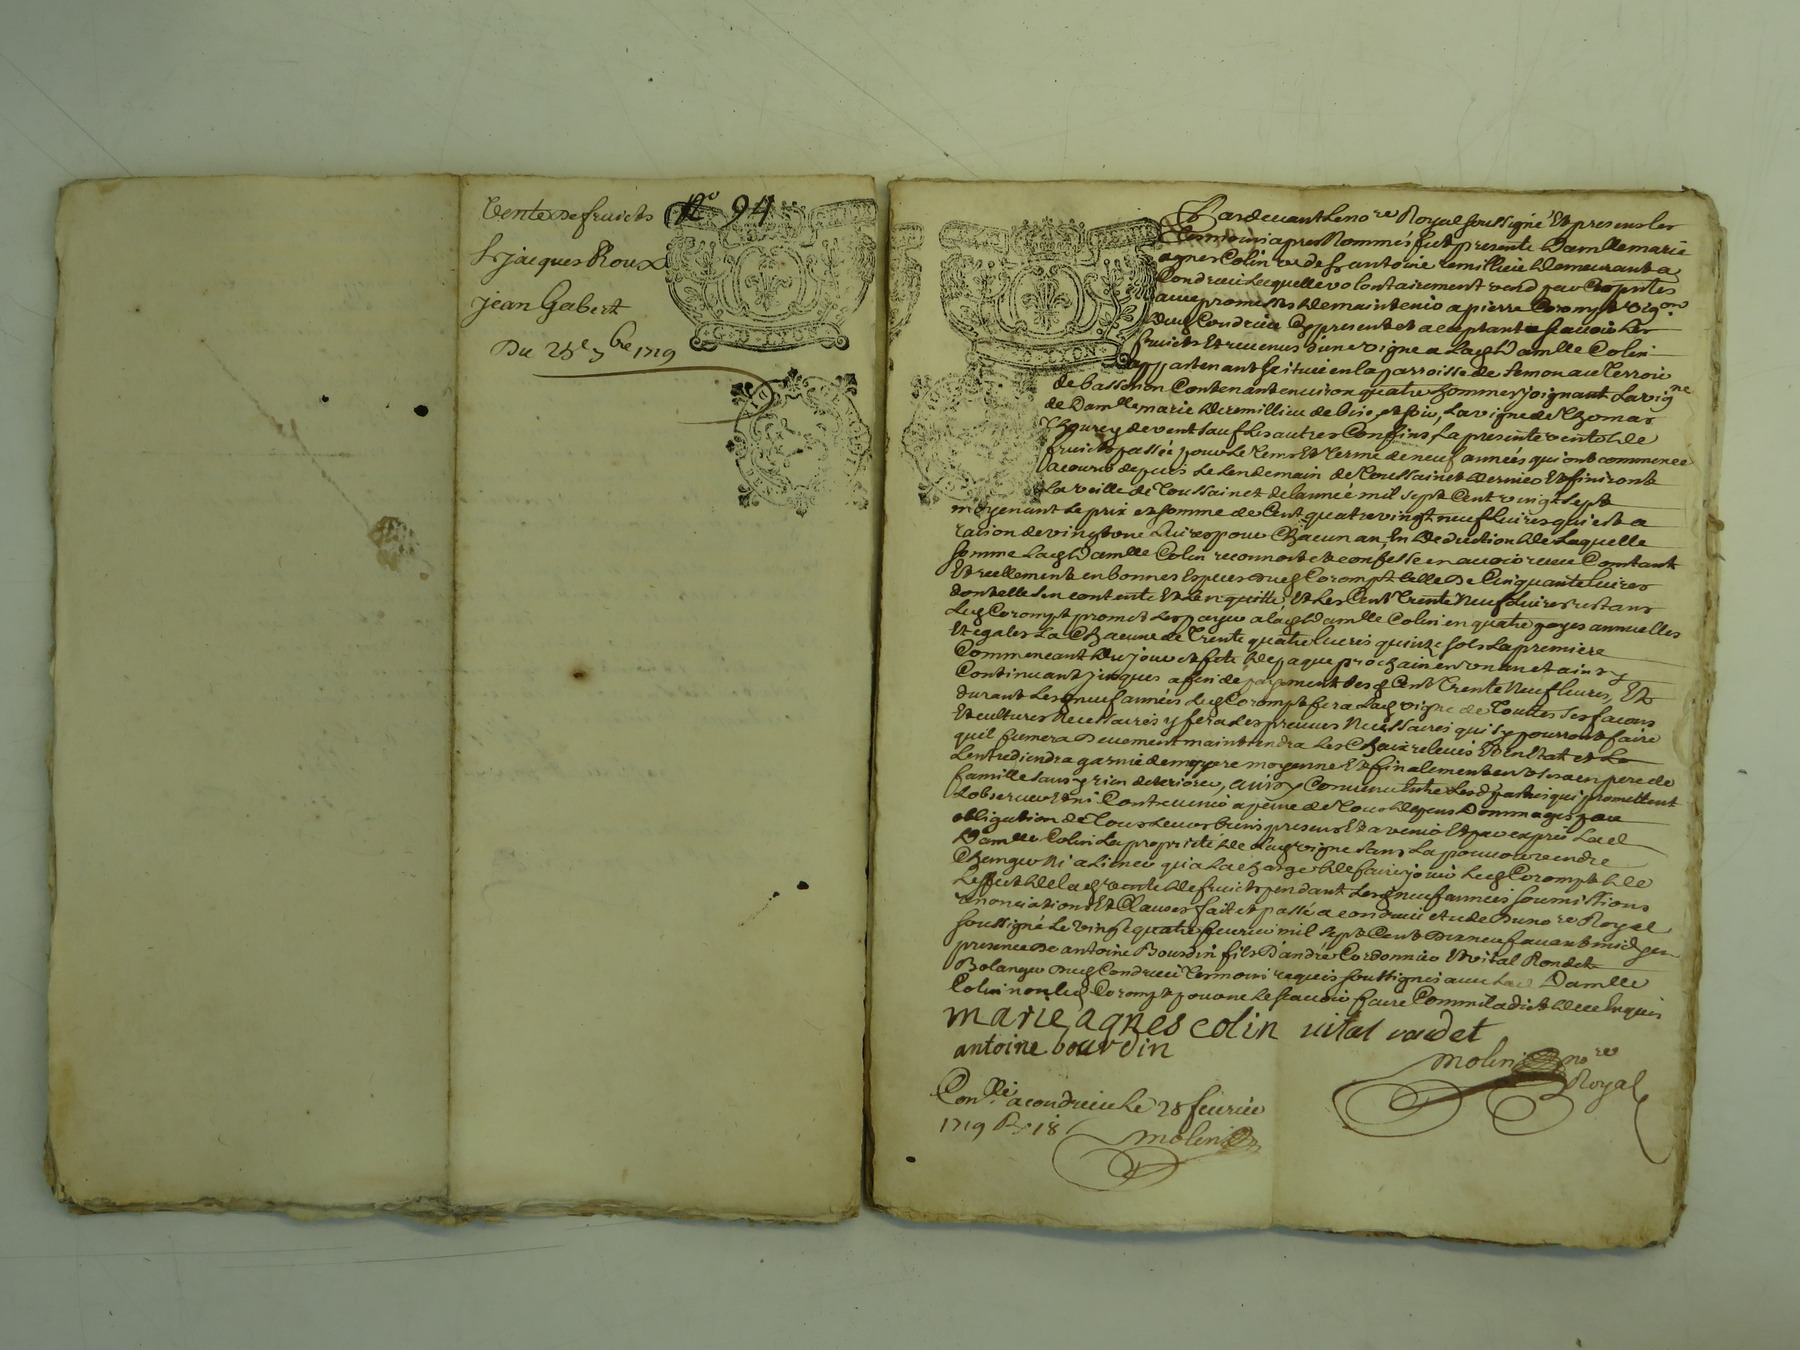 Vente de fruicts
N° 94
Sr jacques Roux
jean Gabert
Du 28e 7bre 1719
Pardevant le nore Royal soussigné Et presens les
Temoins apres Nommés fut presente Damlle marie
agnes Colin ve de sr antoine remillieu demeurant a
Condrieu laquelle volontairement vend par Ces pntes
avec promesses de maintenir a pierre Corompt vigon
dud Condrieu Cy present et aceptant a scavoir les
fruicts Et revenus d'une vigne a lad Damlle Colin
appartenant scituée en la parroisse de Semon au Terroir
de bassenon Contenant environ quatre hommes joignant la vigne
de Damlle marie de remillieu de bise et soir, la vigne de Thomas
de vent sauf les autres Confins, la presente vente de
fruicts passée pour le Tems Et Terme de neuf années qui ont commencé
a courir depuis le lendemain de Toussainct dernier Et finiront
La veille de Toussainct de l'année mil sept Cent vingt sept
moyenant le prix et somme de Cent quatre vingt neuf Livres qui est a
raison de vingt une Livres pour Chacun an, En deduction de Laquelle
somme Lad Damlle Colin reconnoit et confesse en avoir receu Comtant
Et reellement en bonnes Especes dud Corompt Celle de Cinquante livres
dont elle s'en contente Et l'en quitte, Et les Cent Trente Neuf Livres restans
Led Corompt promet les payer a lad Damlle Colin en quatre payes annuelles
Et egales La Chacune de Trente quatre livres quinze sols La premiere
Commencant du jour et fete de paque prochain en un an et ainsy
Continuant jusques a fin de payement desd Cent Trente Neuf livres, Et
durant lesd neuf années Led Corompt fera Lad vigne de Toutes ses facons
Et cultures Necessaires y fera des preuves Necessaires qui s'y pourront faire
quil fumera deuement maintiendra Les Chaix relevés Et en Etat et La
Lentrediendra garnie de moyenne Et finalement en usera en pere de
famille sans y rien deteriorer, ainsy Convenu Entre Lesd parties qui promettent
L'observer Et ni Contrevenir a peine de Tous depens Dommages par
obligation de Tous Leurs biens presens Et a venir Et par exprés La d
Damlle Colin La proprieté de Lad vigne sans La pouvoir vendre
Changer Ni aliener qu'a La charge de faire jouir Led Corompt de
L'effect de lad vente de fruicts pendant Lesd neuf années soumissions
renonciations Et Clauses fait et passé a condrieu etude du nore Royal
soussigné Le vingt quatre fevrier mil sept Cent dix neuf avant midy en
presence de antoine Bourdin fils D'andré Cordonnier Et vital Rondet
Bolanger dud Condrieu Temoins requis soussignés avec La d Damlle
Colin non led Corompt pour ne le scavoir faire Comme il a dict de ce Enquis
marie agnes colin vital rondet
antoine bourdin
molin nore
Royal
Conlle a condrieu le 28 fevrier
1719 R 18
molin